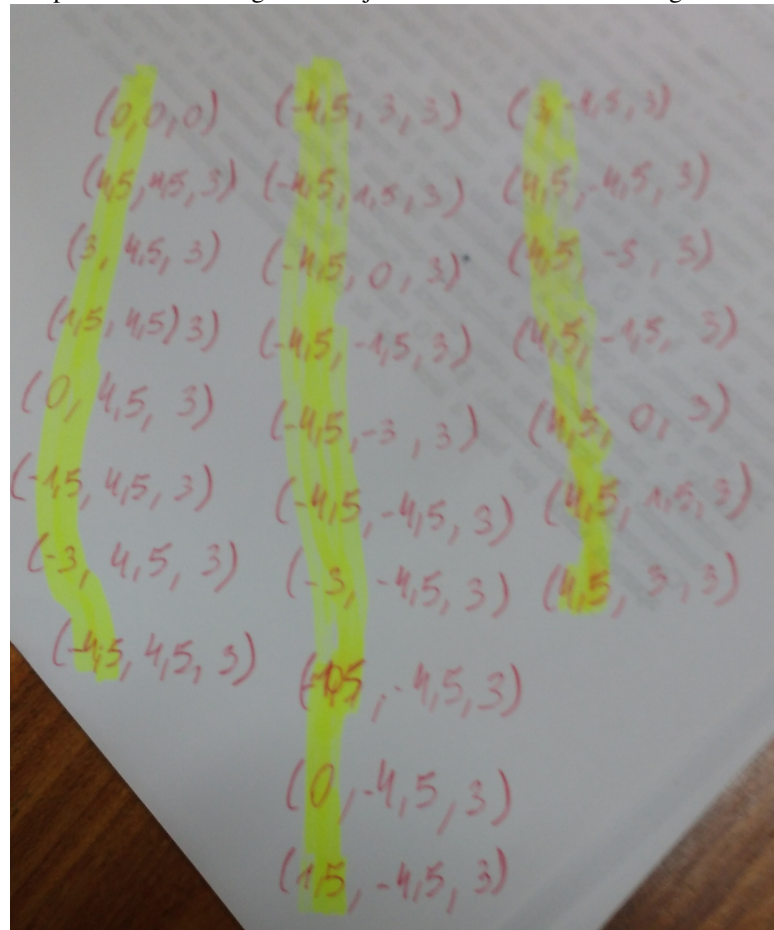 (0,0,0)
(4,5,4,5,3)
(3, 4,5, 3)
(1,5, 4,5) 3)
(0, 4,5, 3)
(-1,5, 4,5, 3)
(-3, 4,5, 3)
(-4,5, 4,5, 3)
(-4,5, 3, 3)
(-4,5, 1,5, 3)
(-4,5, 0, 3)
(-4,5, -1,5, 3)
(-4,5, -3, 3)
(-4,5, -4,5, 3)
(-3, -4,5, 3)
(-1,5, -4,5, 3)
(0, -4,5, 3)
(1,5, -4,5, 3)
(3, -4,5, 3)
(4,5, -4,5, 3)
(4,5, -3, 3)
(4,5, -1,5, 3)
(4,5, 0, 3)
(4,5, 1,5, 3)
(4,5, 3, 3)